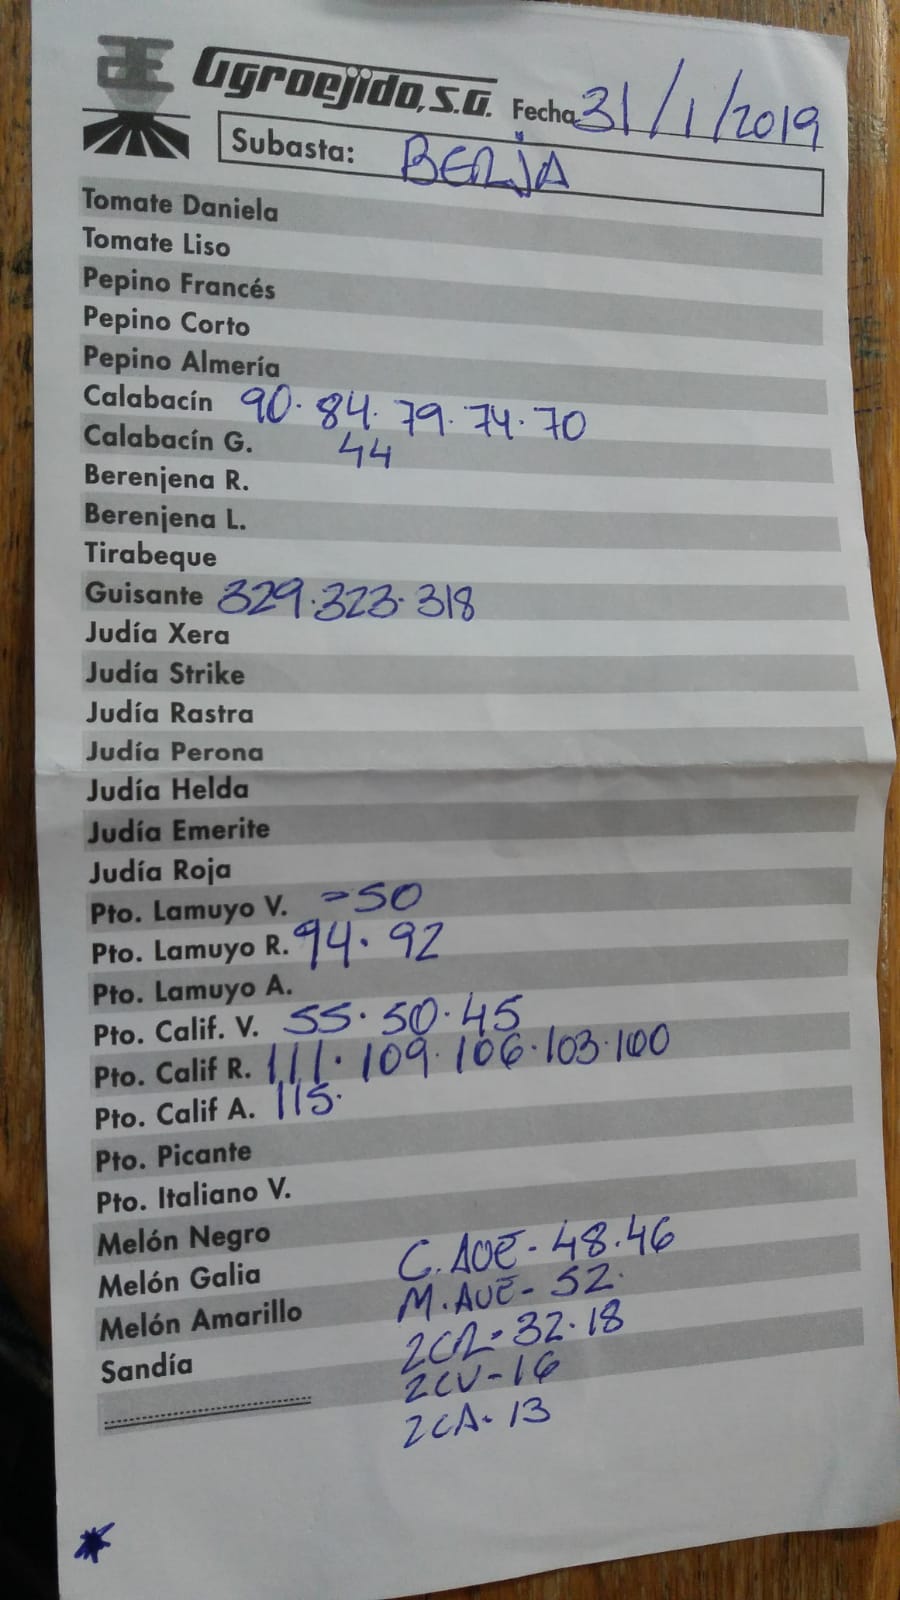 Agroejido, S.A. Fecha 31/1/2019
Subasta: BERJA
Tomate Daniela
Tomate Liso
Pepino Francés
Pepino Corto
Pepino Almería
Calabacín 90. 84. 79. 74. 70
Calabacín G. 44
Berenjena R.
Berenjena L.
Tirabeque
Guisante 329. 323. 318
Judía Xera
Judía Strike
Judía Rastra
Judía Perona
Judía Helda
Judía Emerite
Judía Roja
Pto. Lamuyo V. -50
Pto. Lamuyo R. 94. 92
Pto. Lamuyo A.
Pto. Calif. V. 55. 50. 45
Pto. Calif R. 111. 109. 106. 103. 100
Pto. Calif A. 115.
Pto. Picante
Pto. Italiano V.
Melón Negro
Melón Galia
Melón Amarillo
Sandía
C. AUE - 48. 46
M. AUE - 52.
2CR - 32. 18
2CV - 16
2CA - 13